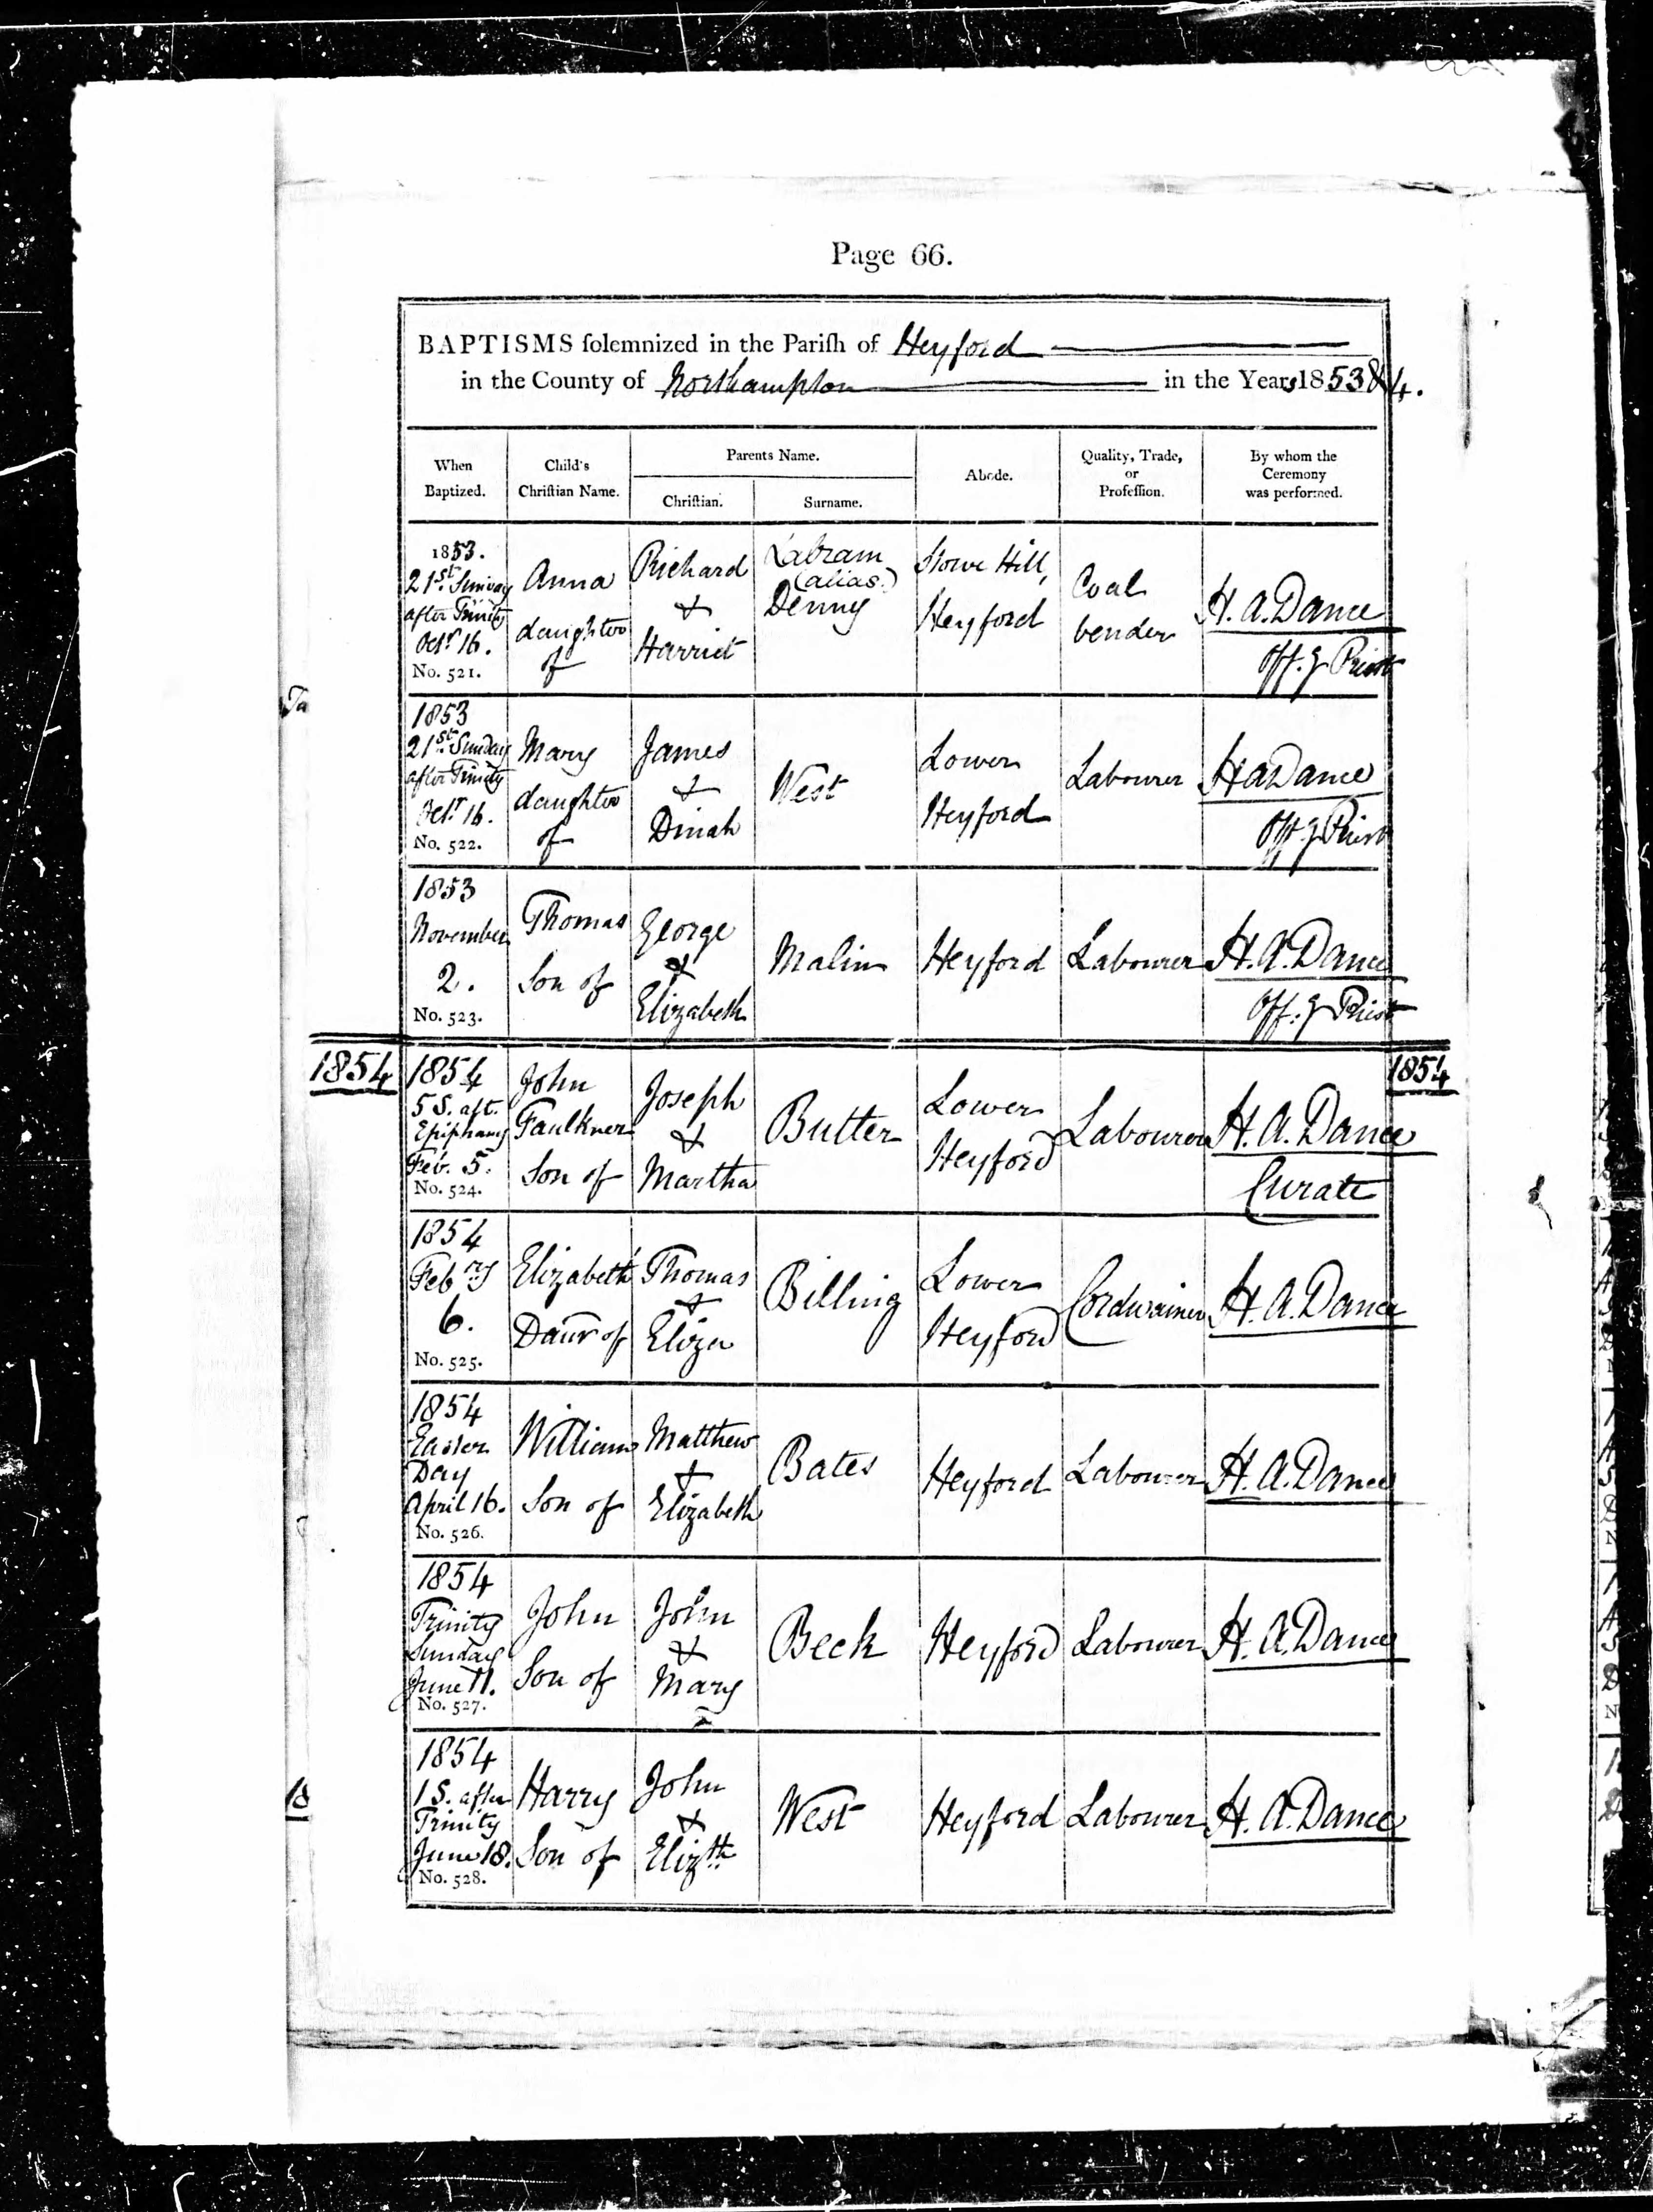 Page 66.
BAPTISMS solemnized in the Parish of Heyford
in the County of Northampton in the Years 1853 & 4.
When Baptized.
Child's Christian Name.
Parents Name.
Christian.
Surname.
Abode.
Quality, Trade, or Profession.
By whom the Ceremony was performed.
1853.
21st Sunday
after Trinity
Octr 16.
No. 521.
Anna
daughter
of
Richard
&
Harriet
Labram
(alias)
Denny
Stowe Hill,
Heyford
Coal
vender
H. A. Dance
Off.g Priest
1853
21st Sunday
after Trinity
Octr 16.
No. 522.
Mary
daughter
of
James
&
Dinah
West
Lower
Heyford
Labourer
H A Dance
Off.g Priest
1853
November
2.
No. 523.
Thomas
Son of
George
&
Elizabeth
Malin
Heyford
Labourer
H. A. Dance
Off.g Priest
1854
1854
5 S. aft.
Epiphany
Feb. 5.
No. 524.
John
Faulkner
Son of
Joseph
&
Martha
Butter
Lower
Heyford
Labourer
H. A. Dance
Curate
1854
1854
Febry
6.
No. 525.
Elizabeth
Daur of
Thomas
&
Eliza
Billing
Lower
Heyford
Cordwainer
H. A. Dance
1854
Easter
Day
April 16.
No. 526.
William
Son of
Matthew
&
Elizabeth
Bates
Heyford
Labourer
H. A. Dance
1854
Trinity
Sunday
June 11.
No. 527.
John
Son of
John
&
Mary
Beck
Heyford
Labourer
H. A. Dance
1854
1 S. after
Trinity
June 18.
No. 528.
Harry
Son of
John
&
Elizth
West
Heyford
Labourer
H. A. Dance
18